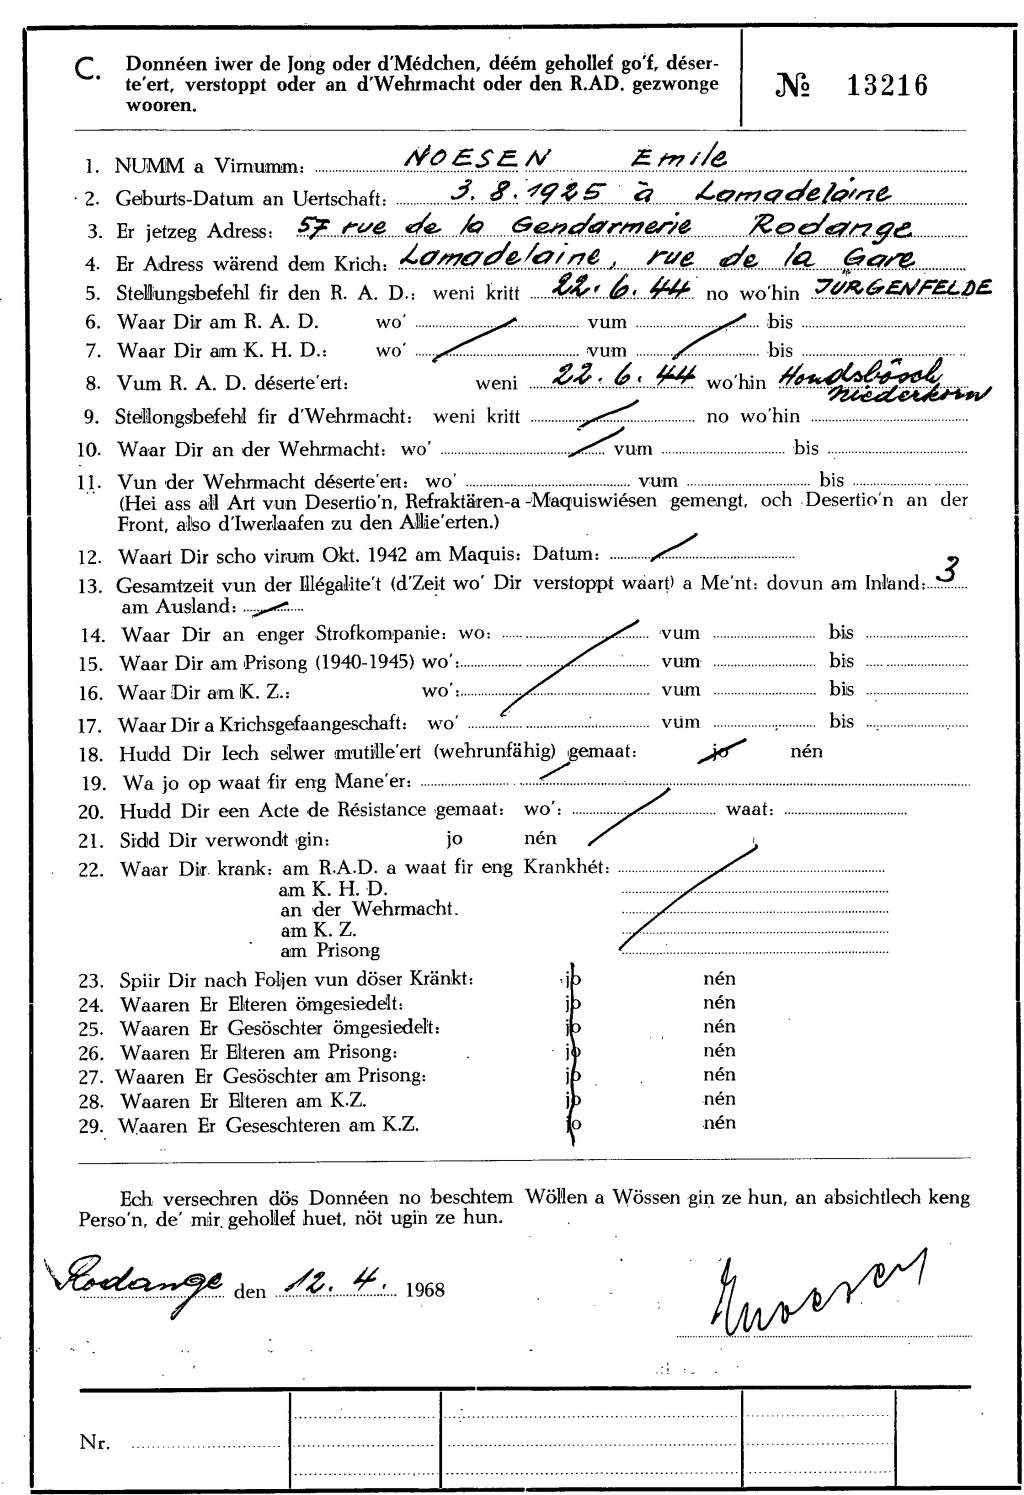 C. Donnéen iwer de Jong oder d'Médchen, déém gehollef go'f, déser-
te'ert, verstoppt oder an d'Wehrmacht oder den R.AD. gezwonge
wooren.
№ 13216
1. NUMM a Virnumm: NOESEN Emile
2. Geburts-Datum an Uertschaft: 3.8.1925 à Lamadelaine
3. Er jetzeg Adress: 57 rue de la Gendarmerie Rodange
4. Er Adress wärend dem Krich: Lamadelaine, rue de la Gare
5. Stellungsbefehl fir den R. A. D.: weni kritt 22.6.44 no wo'hin JÜRGENFELDE
6. Waar Dir am R. A. D. wo' vum bis
7. Waar Dir am K. H. D.: wo' vum bis
8. Vum R. A. D. déserte'ert: weni 22.6.44 wo'hin Hondsbösch
Niederkorn
9. Stellongsbefehl fir d'Wehrmacht: weni kritt no wo'hin
10. Waar Dir an der Wehrmacht: wo' vum bis
11. Vun der Wehrmacht déserte'ert: wo' vum bis
(Hei ass all Art vun Desertio'n, Refraktären-a-Maquiswiésen gemengt, och Desertio'n an der
Front, also d'Iwerlaafen zu den Allie'erten.)
12. Waart Dir scho virum Okt. 1942 am Maquis: Datum:
13. Gesamtzeit vun der Illégalite't (d'Zeit wo' Dir verstoppt waart) a Me'nt: dovun am Inland: 3
am Ausland:
14. Waar Dir an enger Strofkompanie: wo: vum bis
15. Waar Dir am Prisong (1940-1945) wo': vum bis
16. Waar Dir am K. Z.: wo': vum bis
17. Waar Dir a Krichsgefaangeschaft: wo' vum bis
18. Hudd Dir Iech selwer mutille'ert (wehrunfähig) gemaat: jo nén
19. Wa jo op waat fir eng Mane'er:
20. Hudd Dir een Acte de Résistance gemaat: wo': waat:
21. Sidd Dir verwondt gin: jo nén
22. Waar Dir krank: am R.A.D. a waat fir eng Krankhét:
am K. H. D.
an der Wehrmacht.
am K. Z.
am Prisong
23. Spiir Dir nach Foljen vun döser Kränkt: jo nén
24. Waaren Er Elteren ömgesiedelt: jo nén
25. Waaren Er Gesöschter ömgesiedelt: jo nén
26. Waaren Er Elteren am Prisong: jo nén
27. Waaren Er Gesöschter am Prisong: jo nén
28. Waaren Er Elteren am K.Z. jo nén
29. Waaren Er Geseschteren am K.Z. jo nén
Ech versechren dös Donnéen no beschtem Wöllen a Wössen gin ze hun, an absichtlech keng
Perso'n, de' mir gehollef huet, nöt ugin ze hun.
Rodange den 12.4. 1968
Nr.